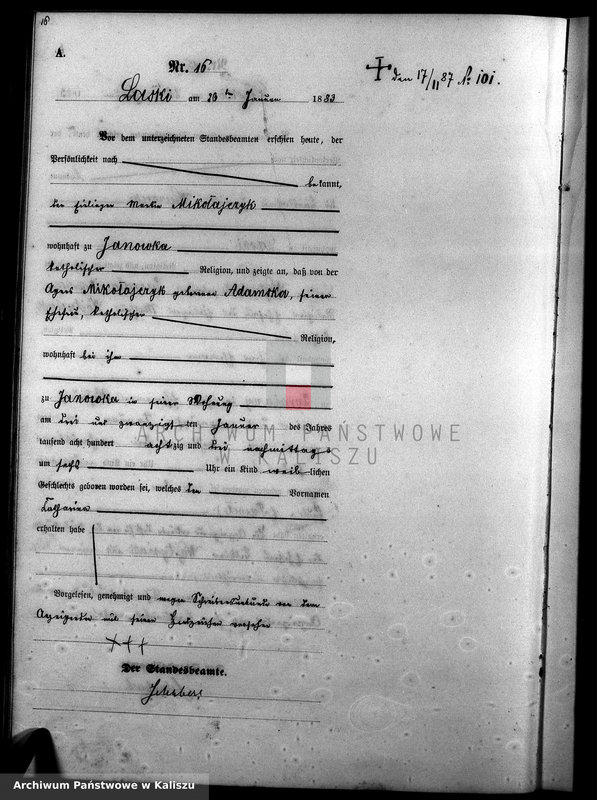 16
A.
Nr. 16
Laski am 26ten Januar 1883
Vor dem unterzeichneten Standesbeamten erschien heute, der
Persönlichkeit nach
bekannt,
der Einlieger Mikołajczyk
wohnhaft zu Janowka
katholischer Religion, und zeigte an, daß von der
Agnes Mikołajczyk geborene Adamska, seiner
Ehefrau, katholischer
Religion,
wohnhaft bei ihm
zu Janowka in seiner Wohnung
am drei und zwanzigsten Januar des Jahres
tausend acht hundert achtzig und drei nachmittags
um sechs Uhr ein Kind weiblichen
Geschlechts geboren worden sei, welches den Vornamen
Catharina
erhalten habe
Vorgelesen, genehmigt und wegen Schreibensunkunde von dem
Anzeigenden mit seinen Handzeichen versehen
+++
Der Standesbeamte.
+ den 17/11 87 No 101.
ARCHIWUM PAŃSTWOWE
W KALISZU
Archiwum Państwowe w Kaliszu